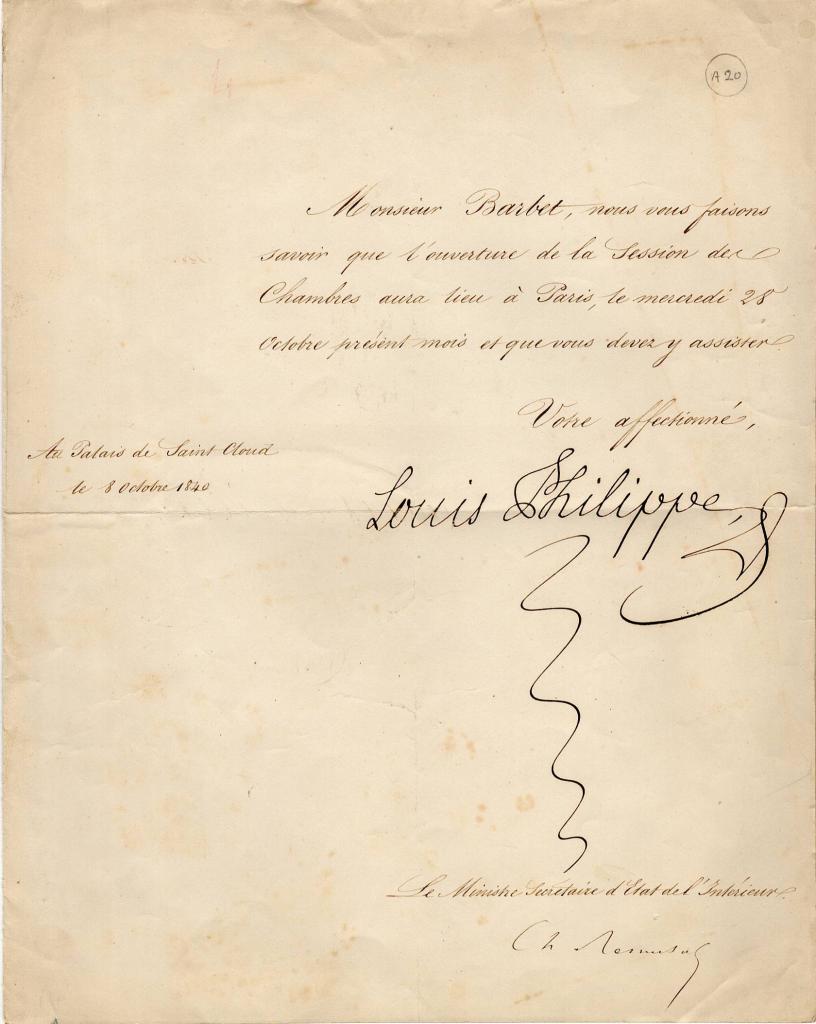 A 20
Monsieur Barbet, nous vous faisons
savoir que l'ouverture de la Session des
Chambres aura lieu à Paris, le mercredi 28
Octobre présent mois et que vous devez y assister.
Votre affectionné,
Au Palais de Saint Cloud
le 8 Octobre 1840
Louis Philippe
Le Ministre Secrétaire d'Etat de l'Intérieur.
Ch Remusat